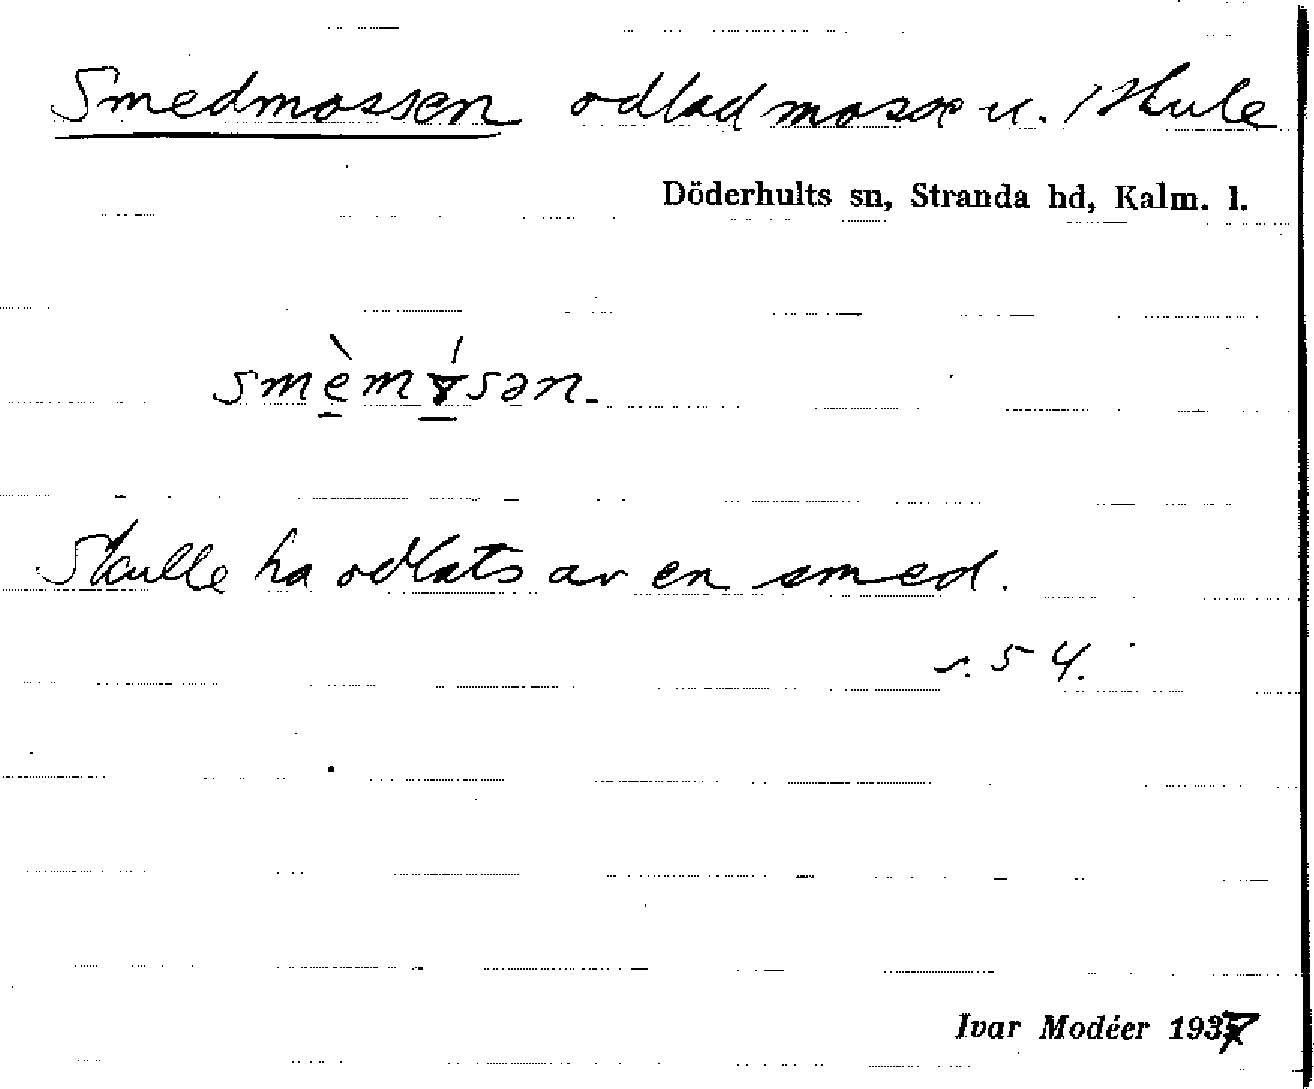 Smedmossen odlad mosse u. 1 Hule
Döderhults sn, Stranda hd, Kalm. l.
smèmɤ́sən.
Skulle ha odlats av en smed.
s. 54.
Ivar Modéer 1937